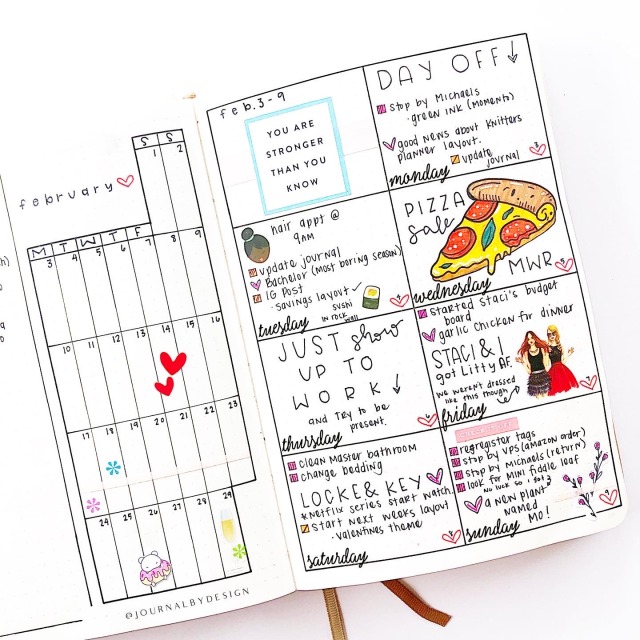 february
S S
1 2
M T W T F
3 4 5 6 7 8 9
10 11 12 13 14 15 16
17 18 19 20 21 22 23
24 25 26 27 28 29
@JOURNALBYDESIGN
feb.3-9
YOU ARE
STRONGER
THAN YOU
KNOW
DAY OFF
stop by Michaels
· green ink (moments)
good news about knitters
planner layout.
update
journal
monday
hair appt @
9AM
update journal
Bachelor (most boring season)
IG Post
· savings layout ✓
sushi
in rock
wall
tuesday
PIZZA
Sale
MWR
wednesday
JUST show
UP TO
WORK
and TRY to be
present.
thursday
started Staci's budget
board
garlic chicken for dinner
STACI & I
got Litty AF.
we weren't dressed
like this though
friday
clean master bathroom
change bedding
LOCKE & KEY
*Netflix series start watch.
start next weeks layout
· valentines theme
saturday
regregister tags
stop by VPS (amazon order)
stop by Michaels (return)
look for mini fiddle leaf
no luck so i got
a new plant
named
MO!
sunday